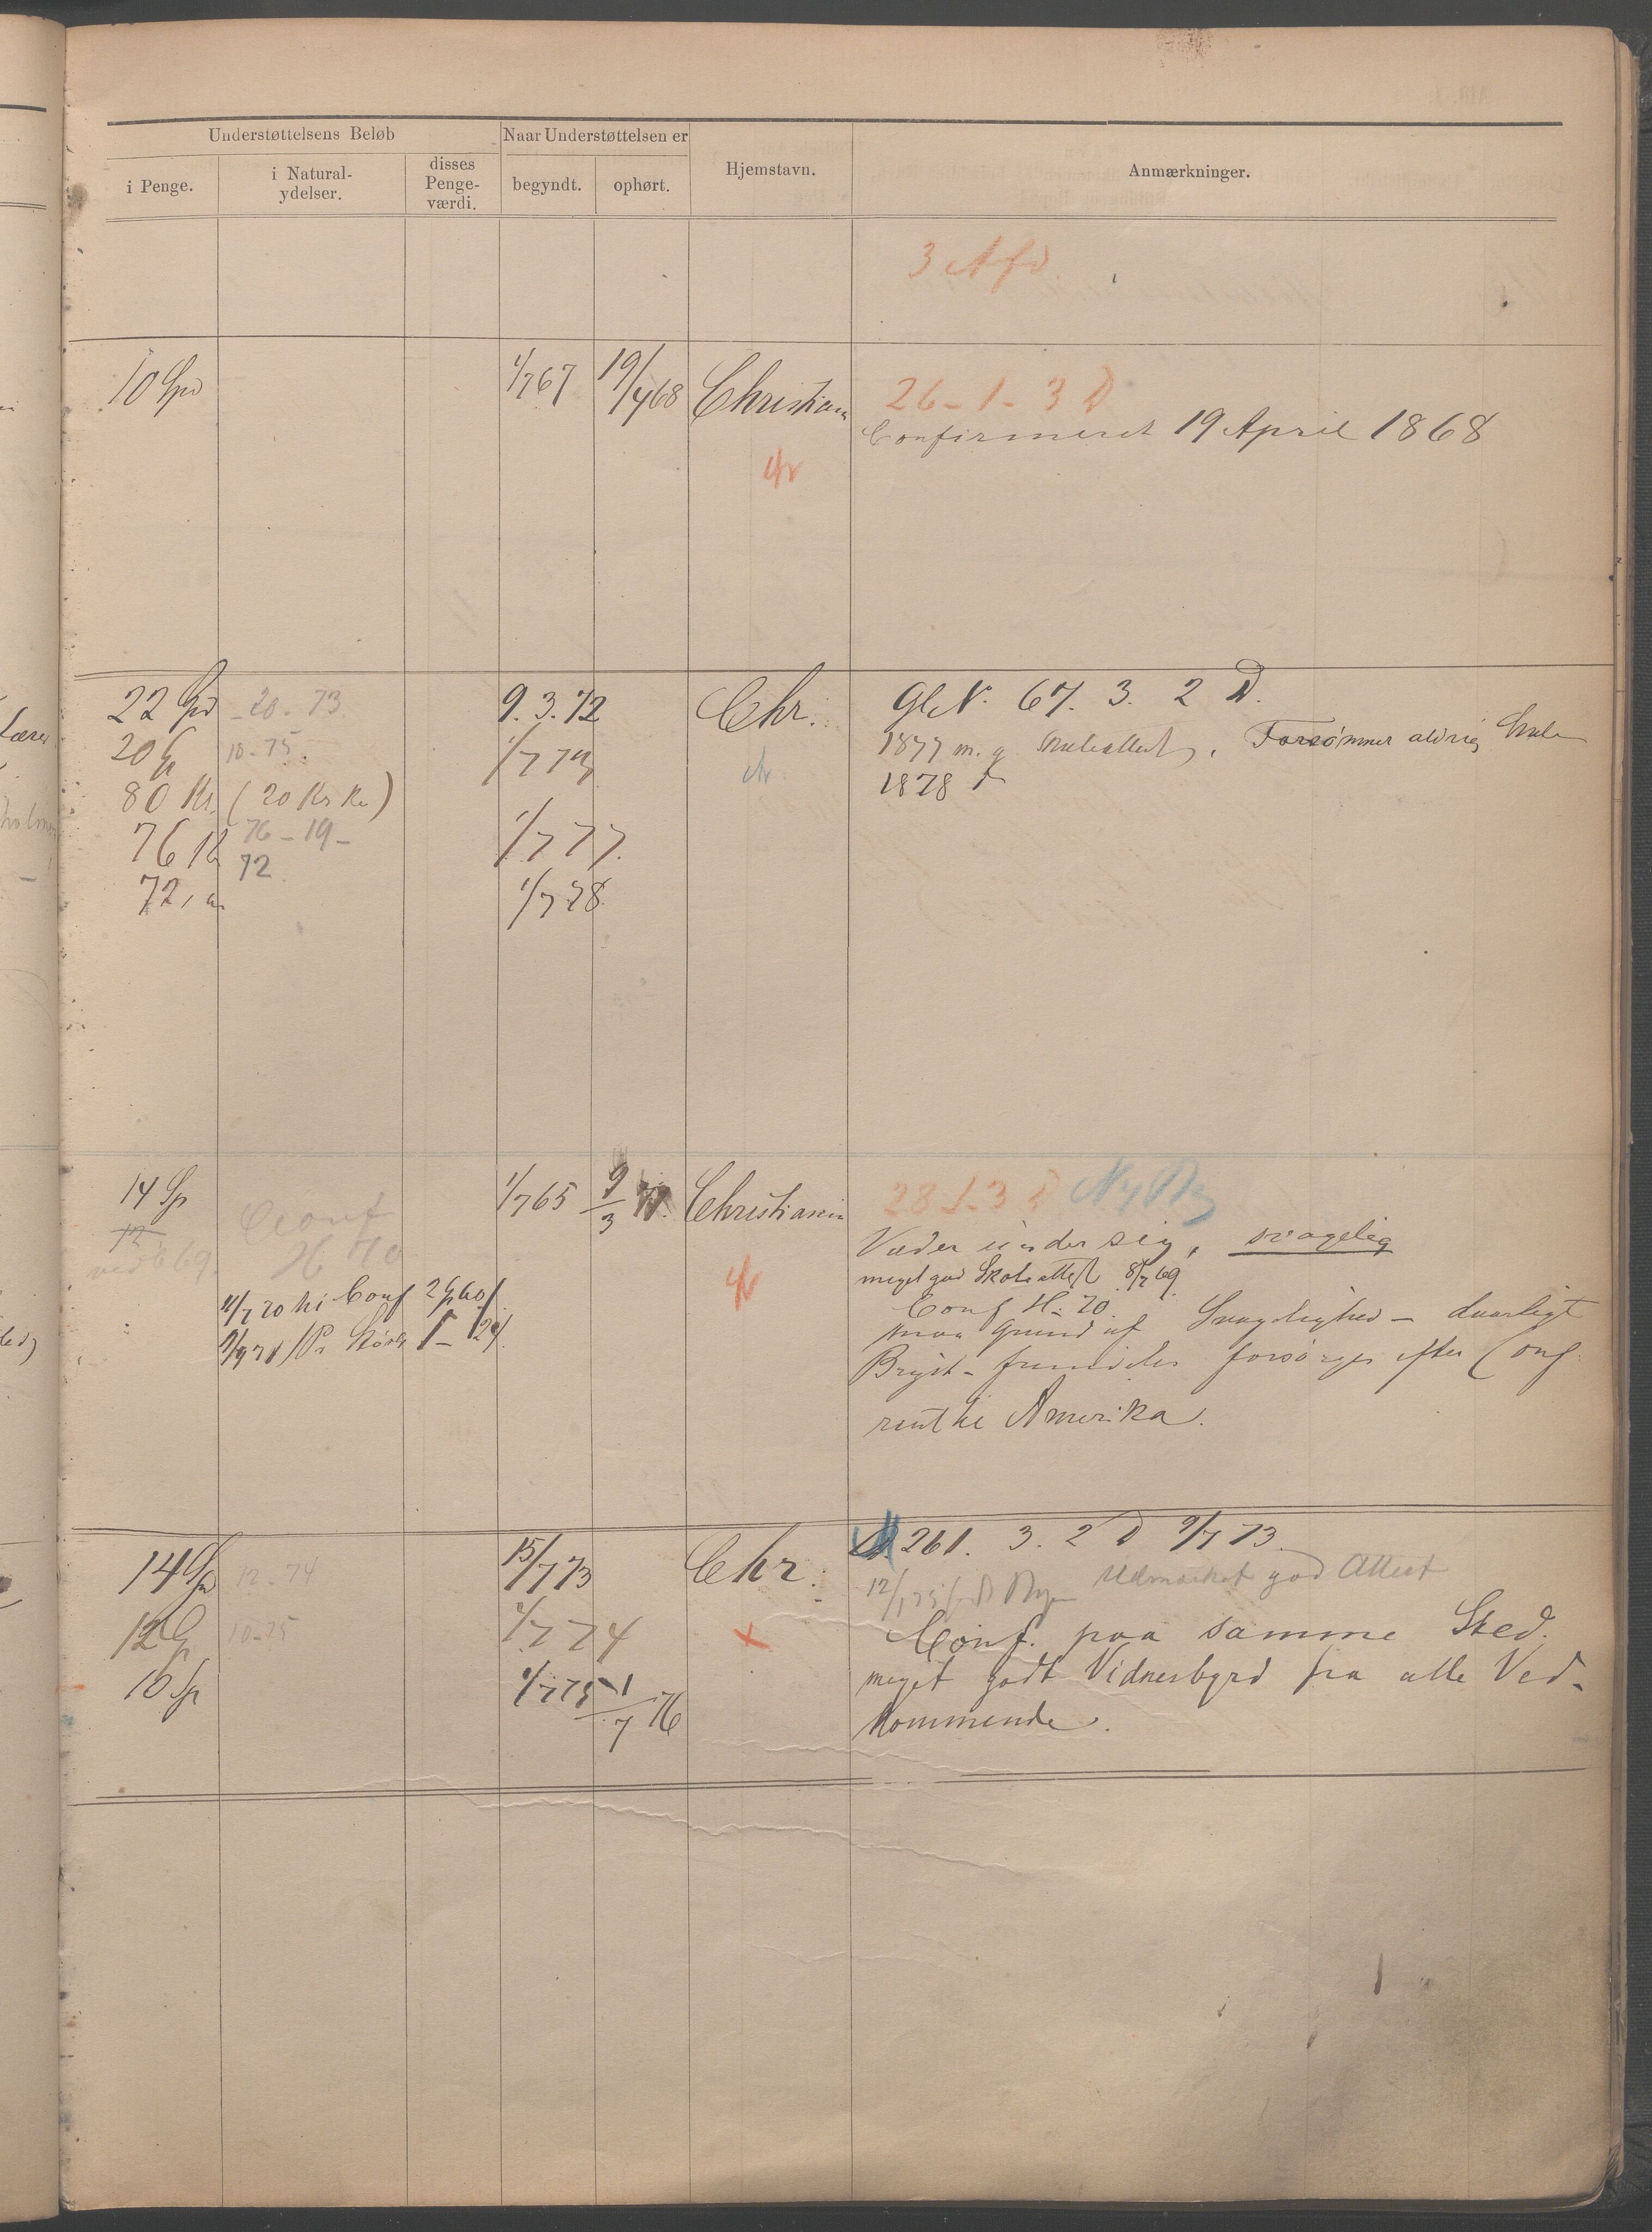 Understøttelsens Beløb
Naar Understøttelsen er
i Penge.
i Natural-
ydelser.
disses
Penge-
værdi.
begyndt.
ophørt.
Hjemstavn.
Anmærkninger.
3 Afd.
10 Spd
1/7 67
19/4 68
Christiania
26-1-3 D
Confirmeret 19 April 1868
22 Spd
-20-73
9.3.72
Chr.
Gl. N. 67. 3. 2 D.
20 Sp
18-75
1877 m. g Skoleattest, Forsømmer aldrig Skole
80 Kr.
(20 Kr Kv)
1878
76 Kr
76-19-
1/7 77.
72
72
1/7 78
14 Sp
1/7 65
9/3
Christiania
28 1-3 D Ny Prg
12
ved 69
Conf
H 70
Væder under sig, svagelig
meget god Skoleattest 8/7 69
Conf H. 70
1/7 70 til Conf 2 Sp 60
paa Grund af Svagelighed - daarligt
Bryst - fremdeles forsørges efter Conf
reist til Amerika.
14 Sp
12-74
15/7 73
Chr.
261. 3. 2 D 9/7 73.
Udmærket god Attest
12 Sp
10-75
1/7 74
Conf. paa samme Sted.
10 Sp
1/7 75
1/7 76
meget godt Vidnesbyrd fra alle Ved-
kommende.